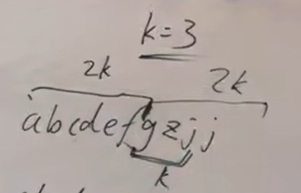 k=3
2k 2k
abcdefgzjj
k